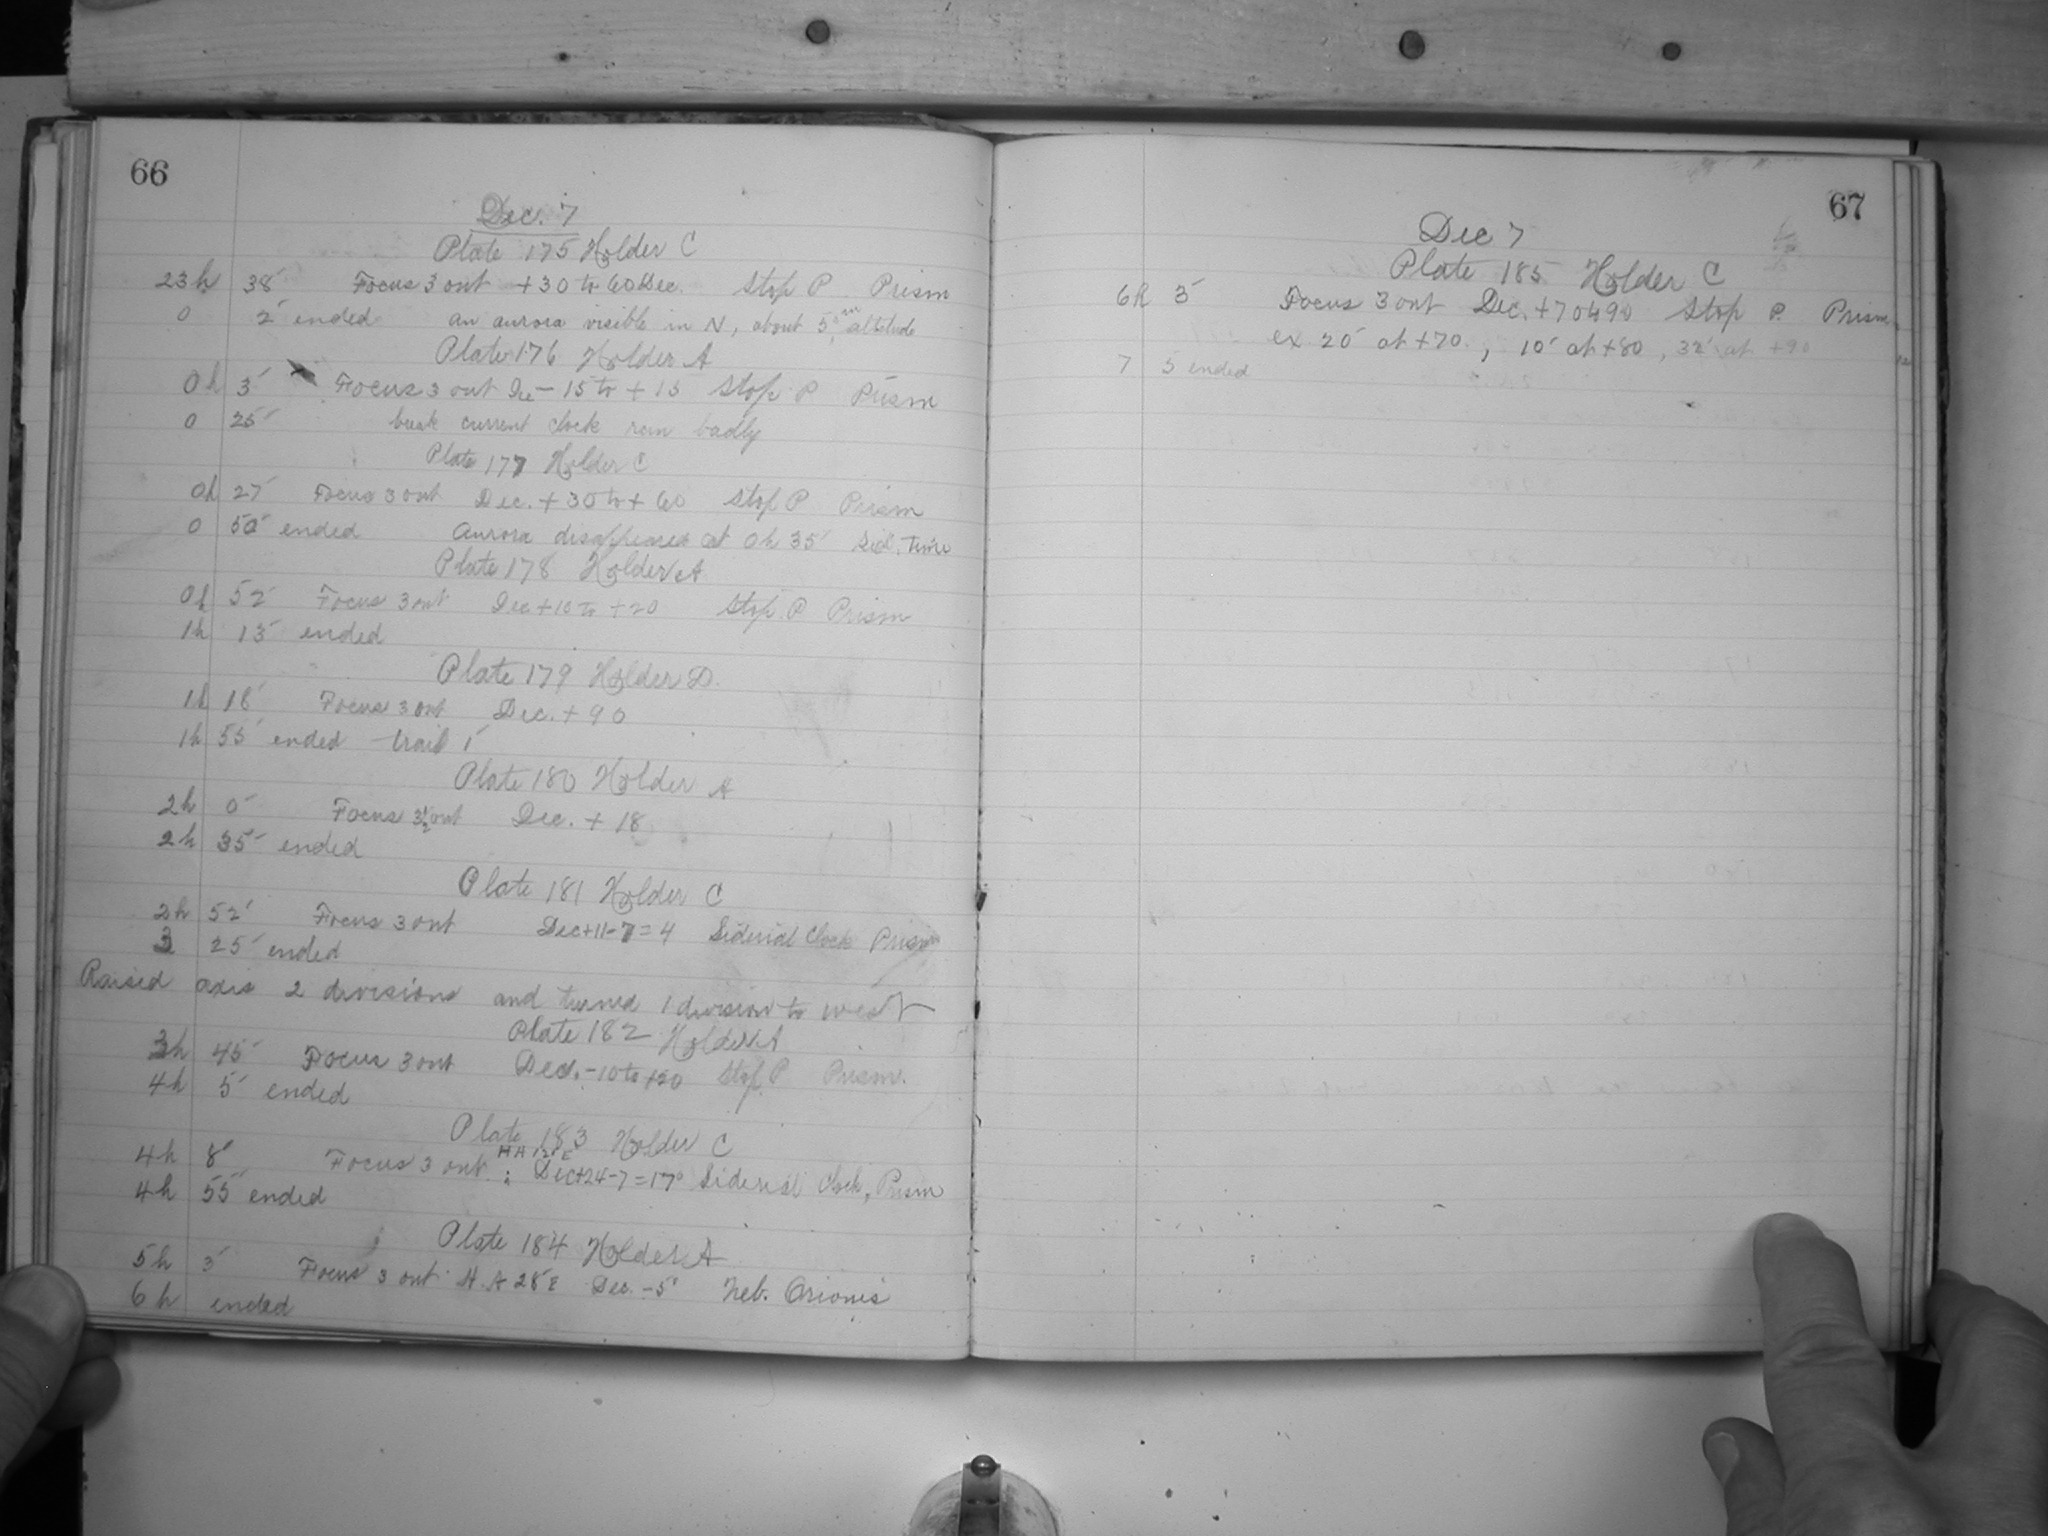 66
Dec. 7
Plate 175 Holder C
23h 38' Focus 3 out +30 to 60 Dec. Stop P Prism
0 2' ended an aurora visible in N, about 5° altitude
Plate 176 Holder A
0h 3' Focus 3 out Dec -15 to +15 Stop P Prism
0 25' current clock ran badly
Plate 177 Holder C
0h 27' Focus 3 out Dec. +30 to +60 Stop P Prism
0 50' ended Aurora disappeared at 0h 35' Sid. Time
Plate 178 Holder A
0h 52' Focus 3 out Dec +10 to +20 Stop P Prism
1h 13' ended
Plate 179 Holder D.
1h 18' Focus 3 out Dec. +90
1h 55' ended trail 1'
Plate 180 Holder A
2h 0' Focus 3½ out Dec. + 18
2h 35' ended
Plate 181 Holder C
2h 52' Focus 3 out Dec +11-7=4 Siderial Clock Prism
3 25' ended
Raised axis 2 divisions and turned 1 division to west
Plate 182 Holder A
3h 45' Focus 3 out Dec. -10 to +20 Stop P Prism.
4h 5' ended
Plate 183 Holder C
4h 8' Focus 3 out : Dec +24-7=17° Sidereal Clock, Prism
4h 55' ended
Plate 184 Holder A
5h 3' Focus 3 out H.A 28' E Dec. -5° Neb. Orionis
6h ended
67
Dec 7
Plate 185 Holder C
6h 5' Focus 3 out Dec. +70 & 90 Stop P. Prism
ex. 20' at +70, 10' at +80, 32' at +90
7 5 ended